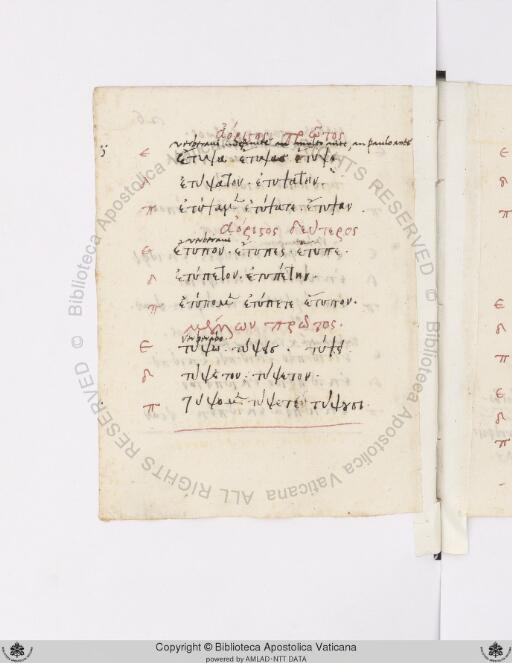 ἀόριστος πρῶτος
verberavi indefinite an multo ante, an paulo ante
ε ἔτυψα ἔτυψας ἔτυψε
δ ἐτύψατον. ἐτυψάτην.
π ἐτύψαμεν ἐτύψατε ἔτυψαν.
ἀόριστος δεύτερος
verberavi
ε ἔτυπον. ἔτυπες. ἔτυπε.
δ ἐτύπετον. ἐτυπέτην.
π ἐτύπομεν ἐτύπετε ἔτυπον.
μέλλων πρῶτος.
verberabo
ε τύψω. τύψεις. τύψει
δ τύψετον. τύψετον.
π τύψομεν τύψετε. τύψουσι.
ε
δ
π
ε
π
ε
δ
π
Biblioteca Apostolica Vaticana ALL RIGHTS RESERVED ©
Copyright © Biblioteca Apostolica Vaticana
powered by AMLAD-NTT DATA